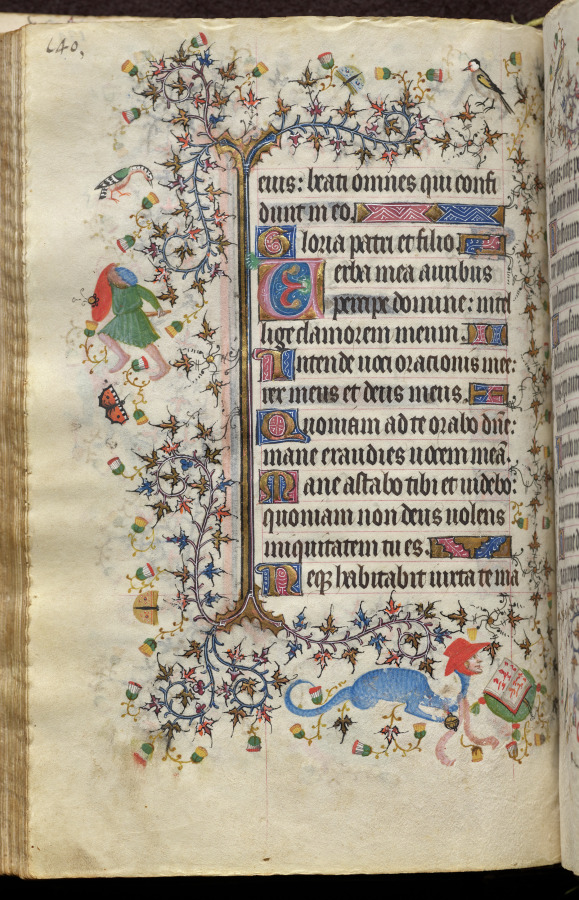 640.
eius: beati omnes qui confi
dunt in eo.
Gloria patri et filio.
Uerba mea auribus
percipe domine: intel
lige clamorem meum.
Intende uoci orationis mee:
rex meus et deus meus.
Quoniam ad te orabo dn̄e:
mane exaudies uocem meā.
Mane astabo tibi et uidebo:
quoniam non deus uolens
iniquitatem tu es.
Neqꝫ habitabit iuxta te ma